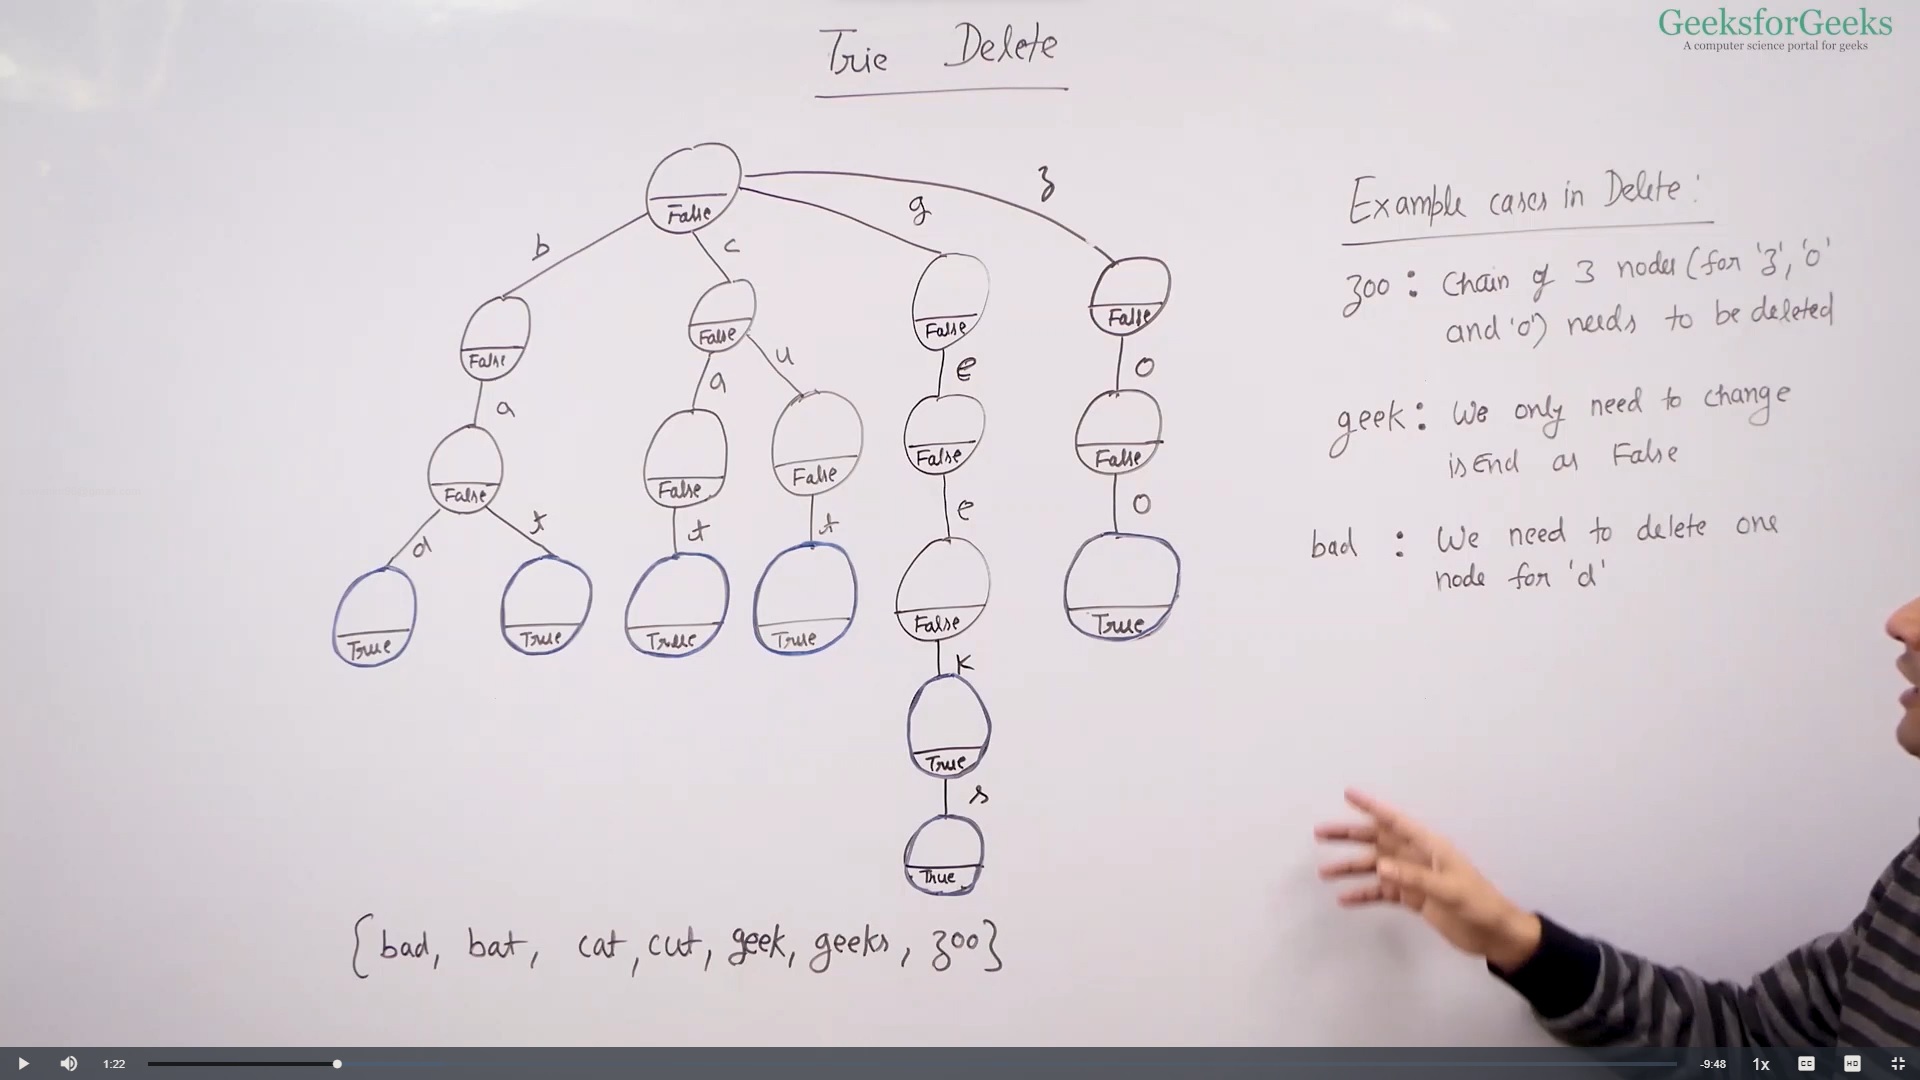 GeeksforGeeks
A computer science portal for geeks
Trie Delete
False
b
c
g
z
False
False
False
False
a
a
u
e
o
False
False
False
False
False
d
t
t
t
e
o
True
True
True
True
False
True
k
True
s
True
{bad, bat, cat, cut, geek, geeks, zoo}
Example cases in Delete:
zoo : Chain of 3 nodes (for 'z', 'o'
and 'o') needs to be deleted
geek: We only need to change
isEnd as False
bad : We need to delete one
node for 'd'
1:22
-9:48
1x
CC
HD